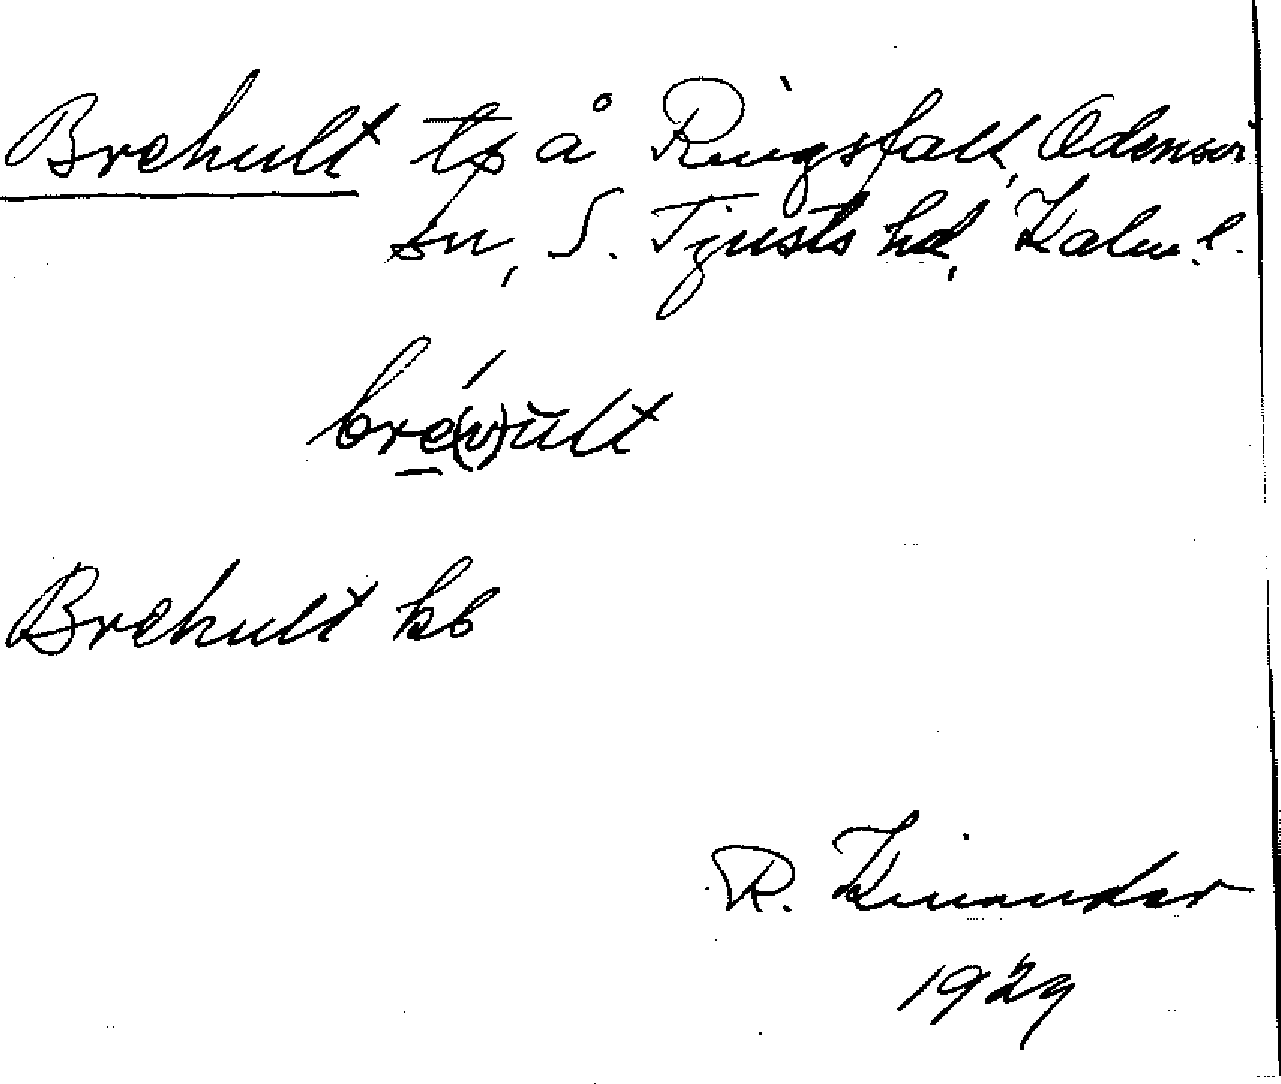 Brehult tp å Ringsfall, Odensvi
sn, S. Tjusts hd, Kalm. l.
bre(v)ŭlt
Brehult kb
R. Kinander
1929